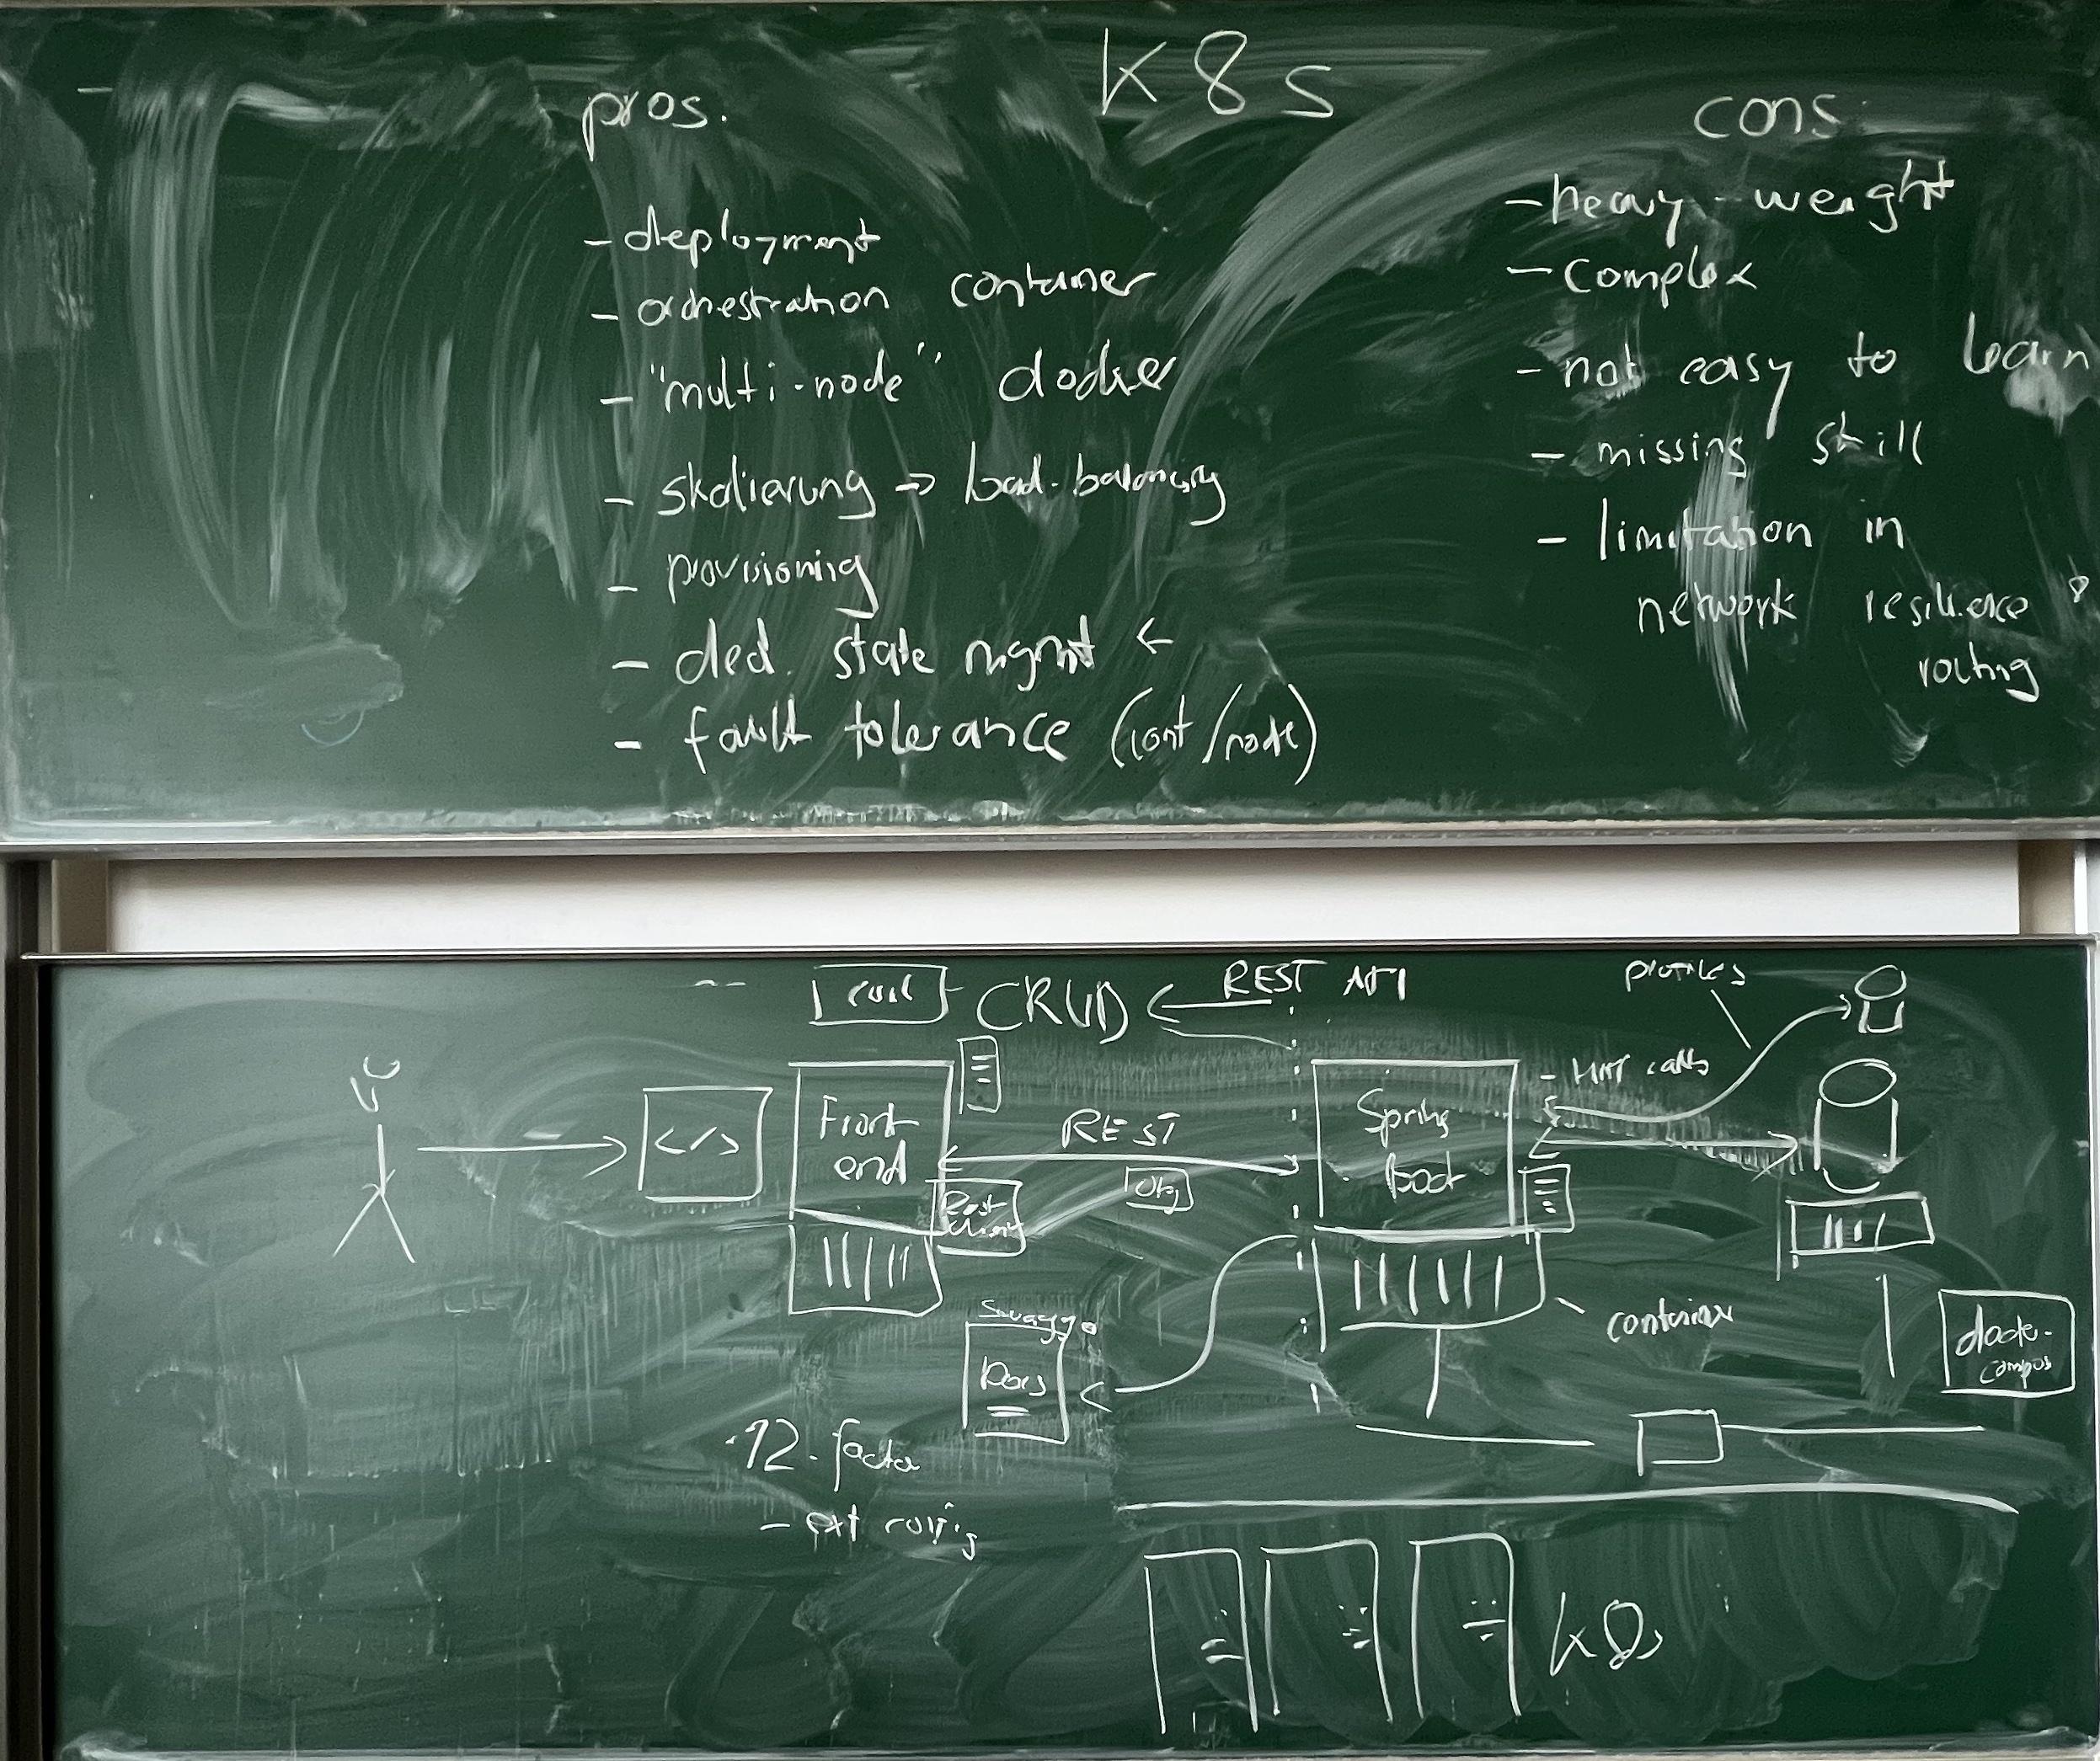 K8s
pros.
- deployment
- orchestration container
- "multi-node" docker
- skalierung → load-balancing
- provisioning
- decl. state mgmt ←
- fault tolerance (cont/node)
cons:
- heavy-weight
- complex
- not easy to learn
- missing skill
- limitation in
network resilience &
routing
curl CRUD ← REST API
profiles
</>
Front
end
REST
Obj
Rest
Client
Spring
Boot
calls
container
Swagger
Docs
docker-
compos
12-factor
- ext config
k8s